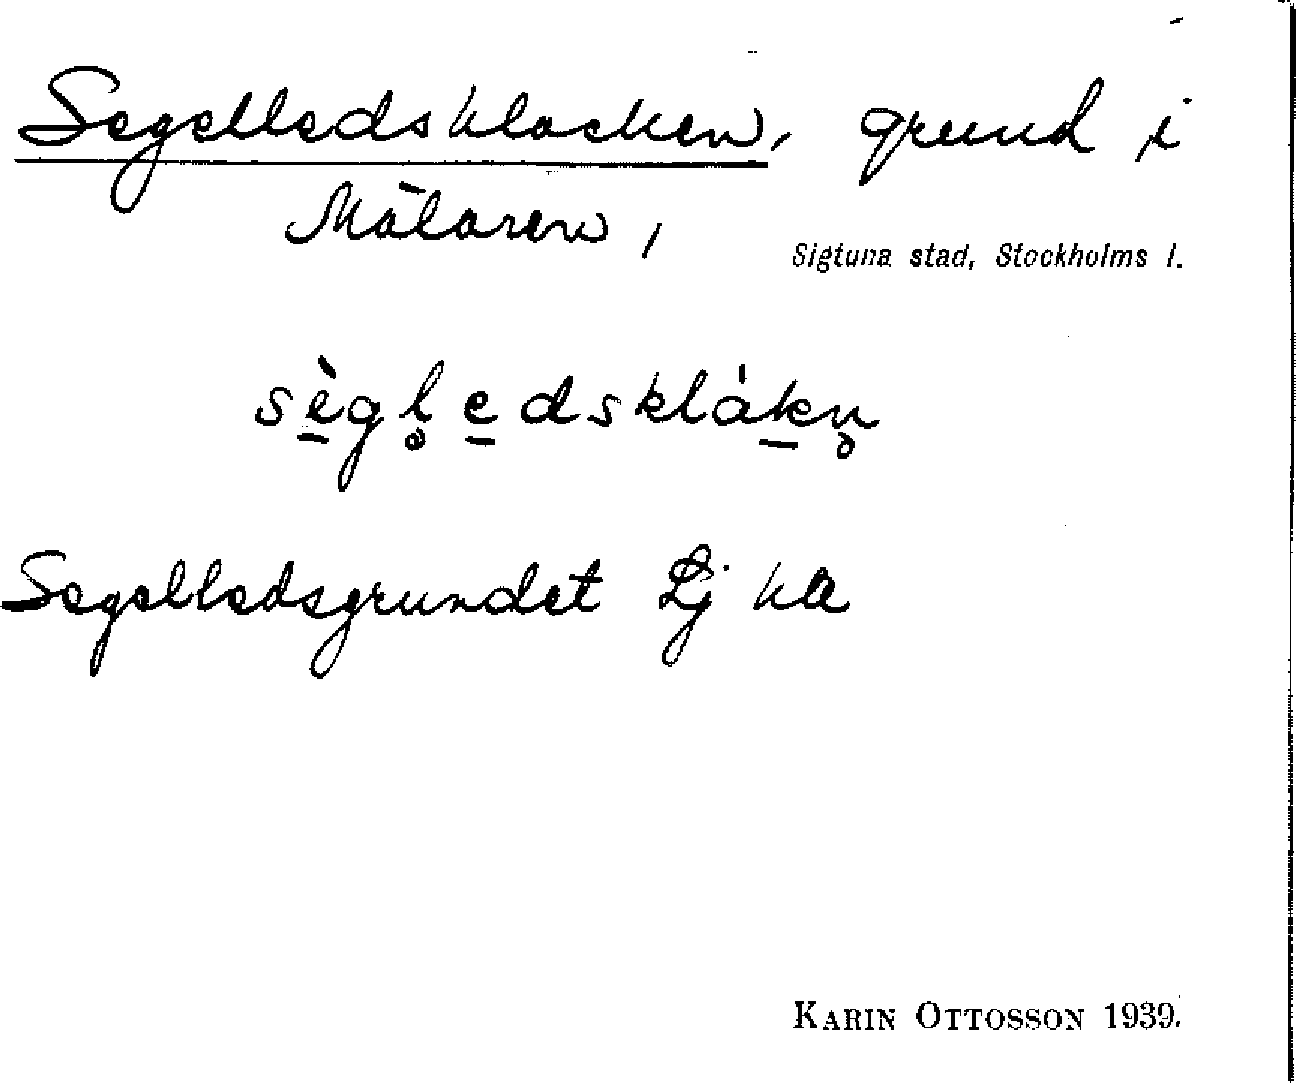 Segelledsklacken, grund i
Mälaren,
Sigtuna stad, Stockholms l.
sègl̥edsklákn̥
Segelledsgrundet Lj ka
KARIN OTTOSSON 1939.